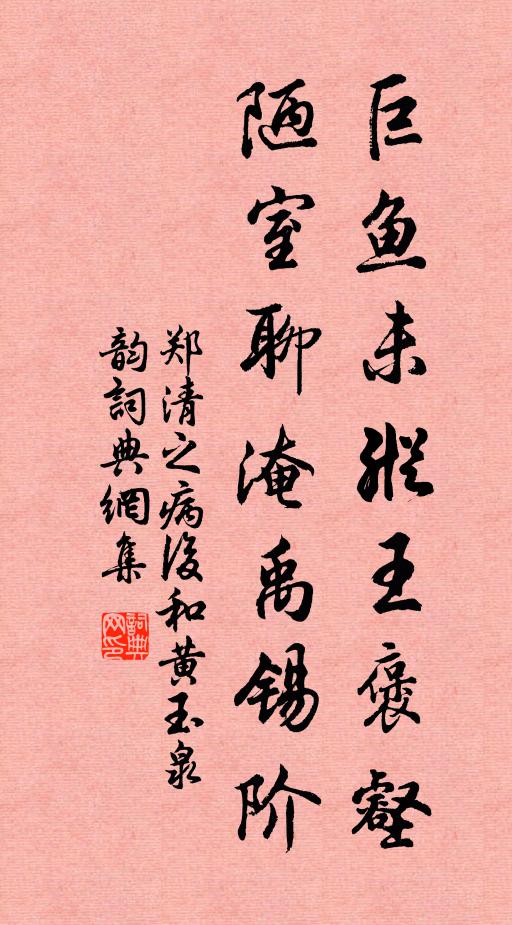 巨鱼未纵王褒壑
陋室聊淹禹锡阶
郑清之病后和黄玉泉
韵词典网集
词典网印